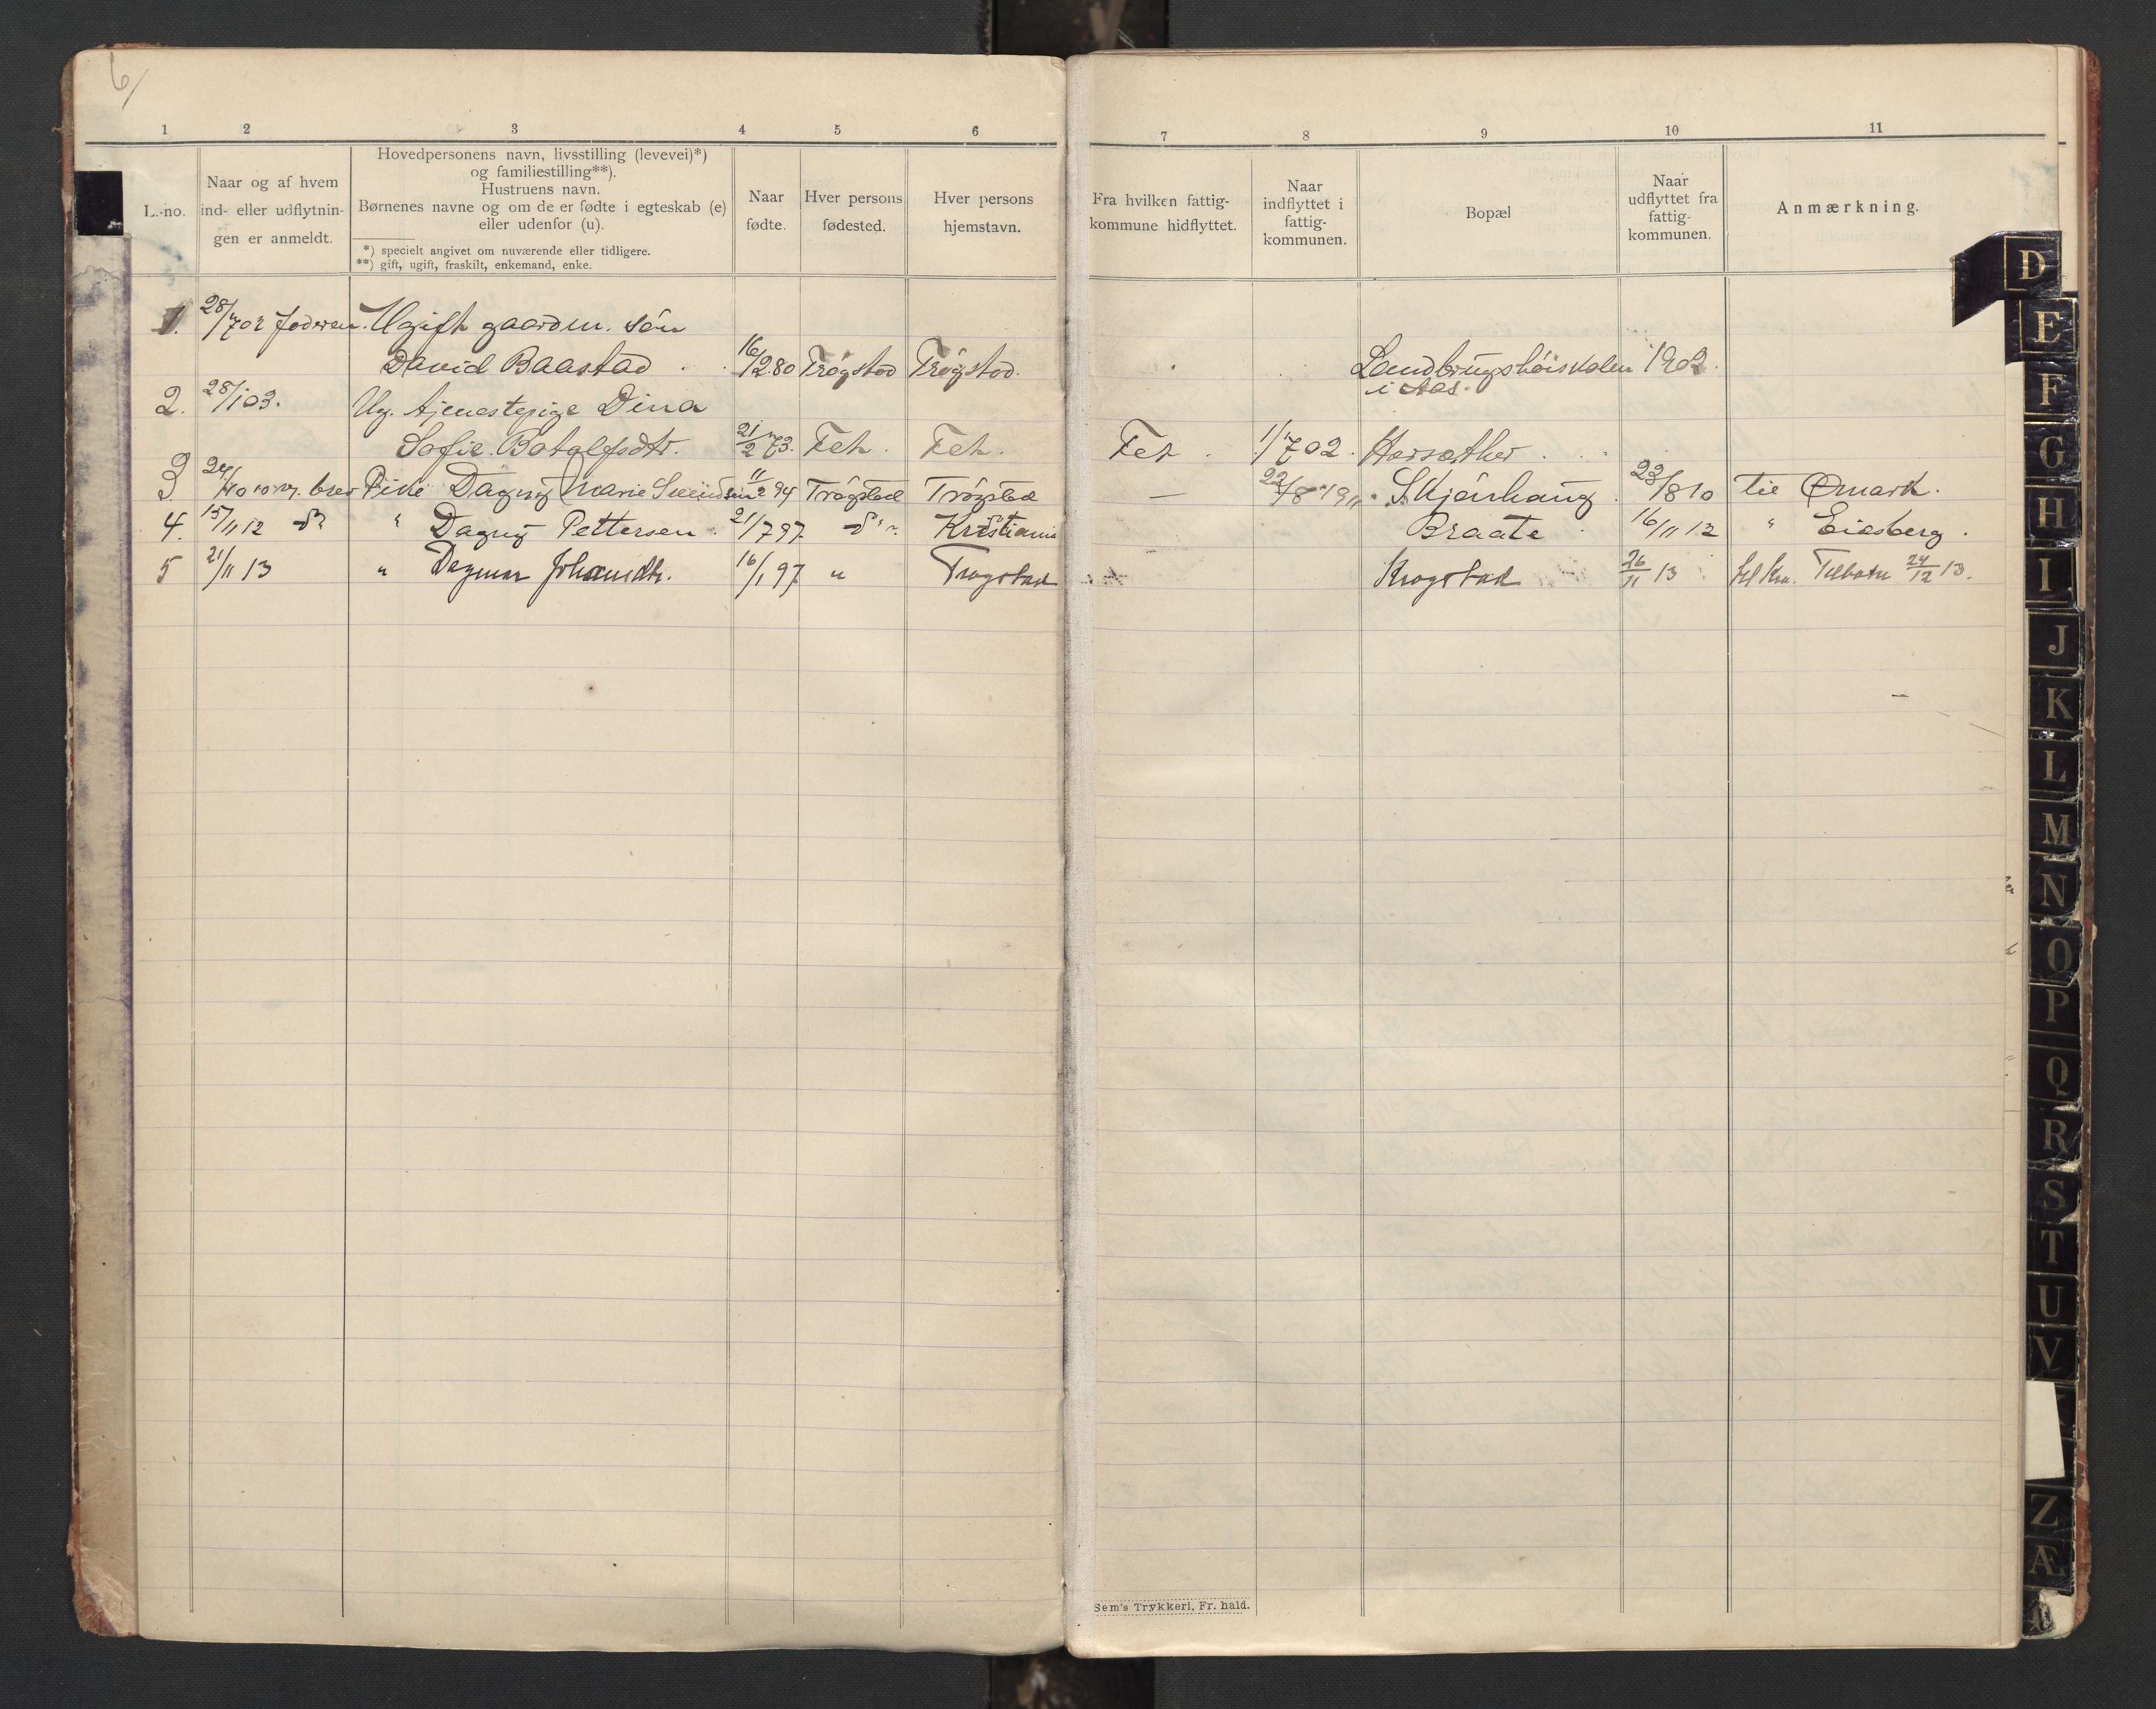 6/
1 2 3 4 5 6
L.-no.
Naar og af hvem
ind- eller udflytnin-
gen er anmeldt.
Hovedpersonens navn, livsstilling (levevei)*)
og familiestilling**).
Hustruens navn.
Børnenes navne og om de er fødte i egteskab (e)
eller udenfor (u).
*) specielt angivet om nuværende eller tidligere.
**) gift, ugift, fraskilt, enkemand, enke.
Naar
fødte.
Hver persons
fødested.
Hver persons
hjemstavn.
1. 28/7 02 Ugift gaardm. søn
David Baastad 16/2 80 Trøgstad Trøgstad.
2. 28/1 03. Ug. tjenestepige Dina
Sofie 21/2 73. Fet. Fet.
3 24/10 10 brev Pike Dagny Marie 11/2 94 Trøgstad Trøgstad
4. 15/11 12 do " Dagny Pettersen 21/7 97 do Kristiania
5 21/11 13 " Dagmar Johansdtr. 16/1 97 " Trøgstad
7 8 9 10 11
Fra hvilken fattig-
kommune hidflyttet.
Naar
indflyttet i
fattig-
kommunen.
Bopæl
Naar
udflyttet fra
fattig-
kommunen.
Anmærkning.
Landbrugshøiskolen 1902.
i Aas.
Fet. 1/7 02. Harsæther
— 22/8 1911 Skjønhaug 23/8 10 til Ømark.
Braate 16/11 12 " Eidsberg.
Krogstad 26/11 13 til Kra. Tilbake 24/12 13.
Sem's Trykkeri, Fr. hald.
D
E
F
G
H
I
J
K
L
M
N
O
P
Q
R
S
T
U
V
Z
Æ